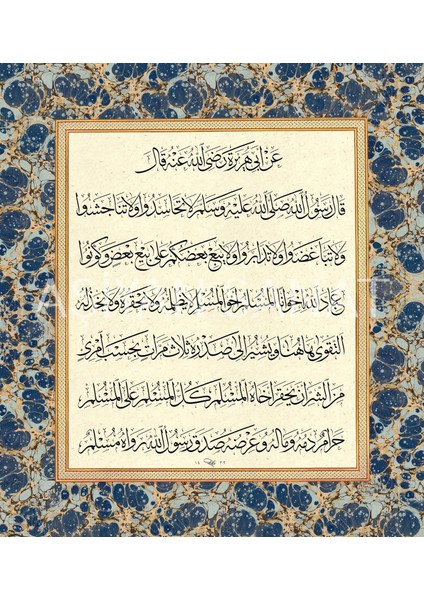 عَنْ أَبِي هُرَيْرَةَ رَضِيَ اللهُ عَنْهُ قَالَ
قَالَ رَسُولُ اللهِ صَلَّى اللهُ عَلَيْهِ وَسَلَّمَ لَا تَحَاسَدُوا وَلَا تَنَاجَشُوا
وَلَا تَبَاغَضُوا وَلَا تَدَابَرُوا وَلَا يَبِعْ بَعْضُكُمْ عَلَى بَيْعِ بَعْضٍ وَكُونُوا
عِبَادَ اللهِ إِخْوَانًا الْمُسْلِمُ أَخُو الْمُسْلِمِ لَا يَظْلِمُهُ وَلَا يَحْقِرُهُ وَلَا يَخْذُلُهُ
التَّقْوَى هَاهُنَا وَيُشِيرُ إِلَى صَدْرِهِ ثَلَاثَ مَرَّاتٍ بِحَسْبِ امْرِئٍ
مِنَ الشَّرِّ أَنْ يَحْقِرَ أَخَاهُ الْمُسْلِمَ كُلُّ الْمُسْلِمِ عَلَى الْمُسْلِمِ
حَرَامٌ دَمُهُ وَمَالُهُ وَعِرْضُهُ صَدَقَ رَسُولُ اللهِ رَوَاهُ مُسْلِمٌ